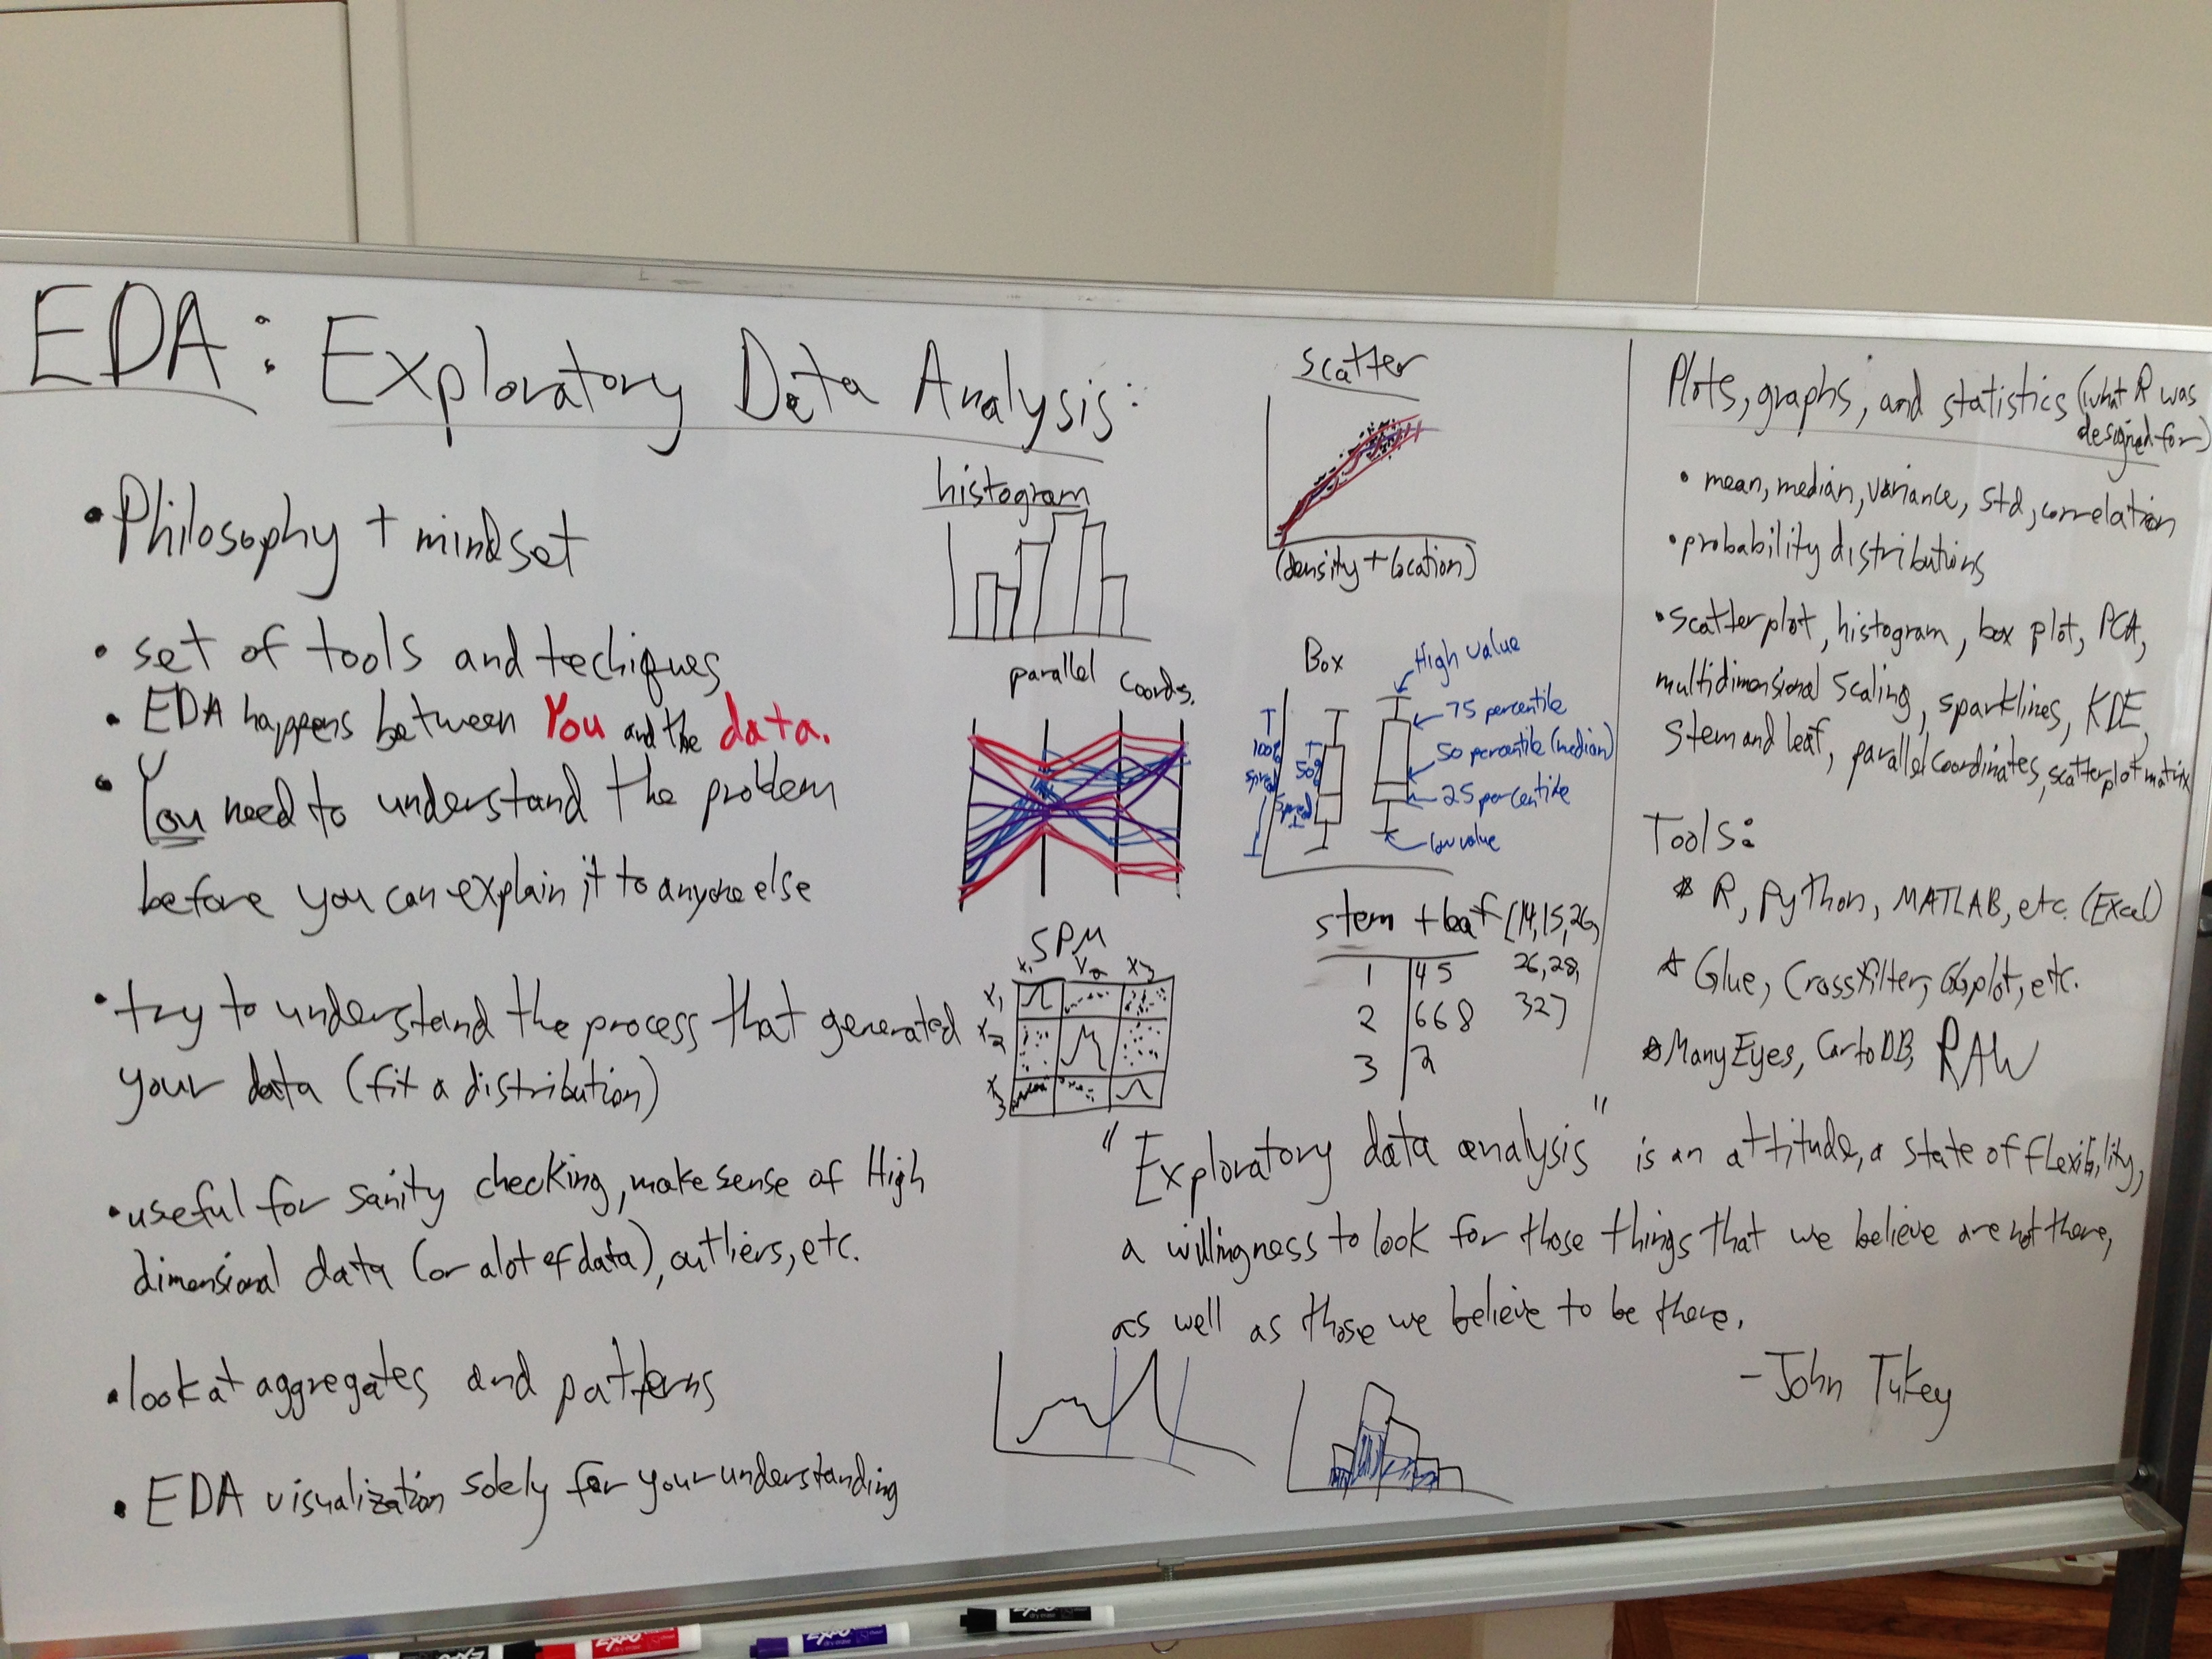 EDA: Exploratory Data Analysis:
• Philosophy + mindset
• set of tools and techiques
• EDA happens between You and the data.
• You need to understand the problem
before you can explain it to anyone else
• try to understand the process that generated
your data (fit a distribution)
• useful for sanity checking, make sense of High
dimensional data (or alot of data), outliers, etc.
• look at aggregates and patterns
• EDA visualization solely for your understanding
histogram
parallel coords.
SPM
x1 x2 x3
x1
x2
x3
scatter
(density + location)
Box
High value
75 percentile
50 percentile (median)
25 percentile
low value
100%
spread
50%
spread
stem + leaf [14, 15, 26,
26, 28,
32]
1 | 4 5
2 | 6 6 8
3 | 2
Plots, graphs, and statistics (what R was
designed for)
• mean, median, variance, std, correlation
• probability distributions
• scatterplot, histogram, box plot, PCA,
multidimensional scaling, sparklines, KDE,
stem and leaf, parallel coordinates, scatterplot matrix
Tools:
* R, Python, MATLAB, etc. (Excel)
* Glue, Crossfilter, GGplot, etc.
* ManyEyes, CartoDB, RAW
"Exploratory data analysis" is an attitude, a state of flexibility,
a willingness to look for those things that we believe are not there,
as well as those we believe to be there.
- John Tukey
EXPO
EXPO
EXPO
EXPO